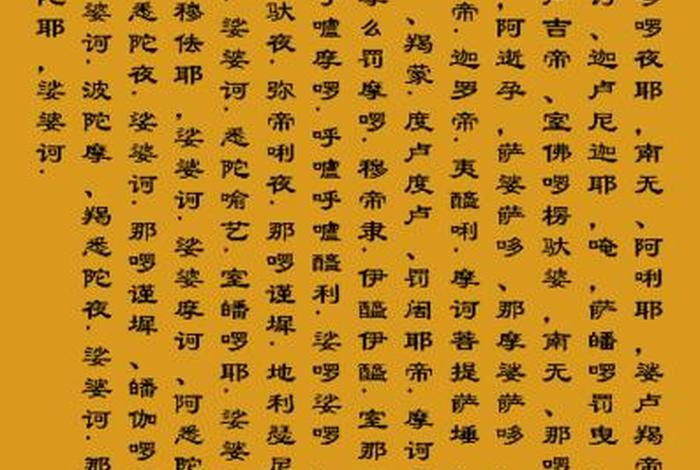 哆啰夜耶，南无、阿唎耶，婆卢羯帝
诃、迦卢尼迦耶，唵，萨皤啰罚曳
吉帝、室佛啰楞驮婆，南无、那啰
，阿逝孕，萨婆萨哆、那摩婆萨哆
帝.迦罗帝.夷醯唎.摩诃菩提萨埵
、羯蒙.度卢度卢、罚阇耶帝.摩诃
摩么罚摩啰.穆帝隶.伊醯伊醯.室那
呼嚧摩啰.呼嚧呼嚧醯利.娑啰娑啰
驮夜.弥帝唎夜.那啰谨墀.地利瑟尼
娑婆诃.悉陀喻艺.室皤啰耶.娑婆
穆佉耶，娑婆诃.娑婆摩诃、阿悉陀
悉陀夜.娑婆诃.那啰谨墀、皤伽啰
婆诃.波陀摩、羯悉陀夜.娑婆诃.那
陀耶，娑婆诃.